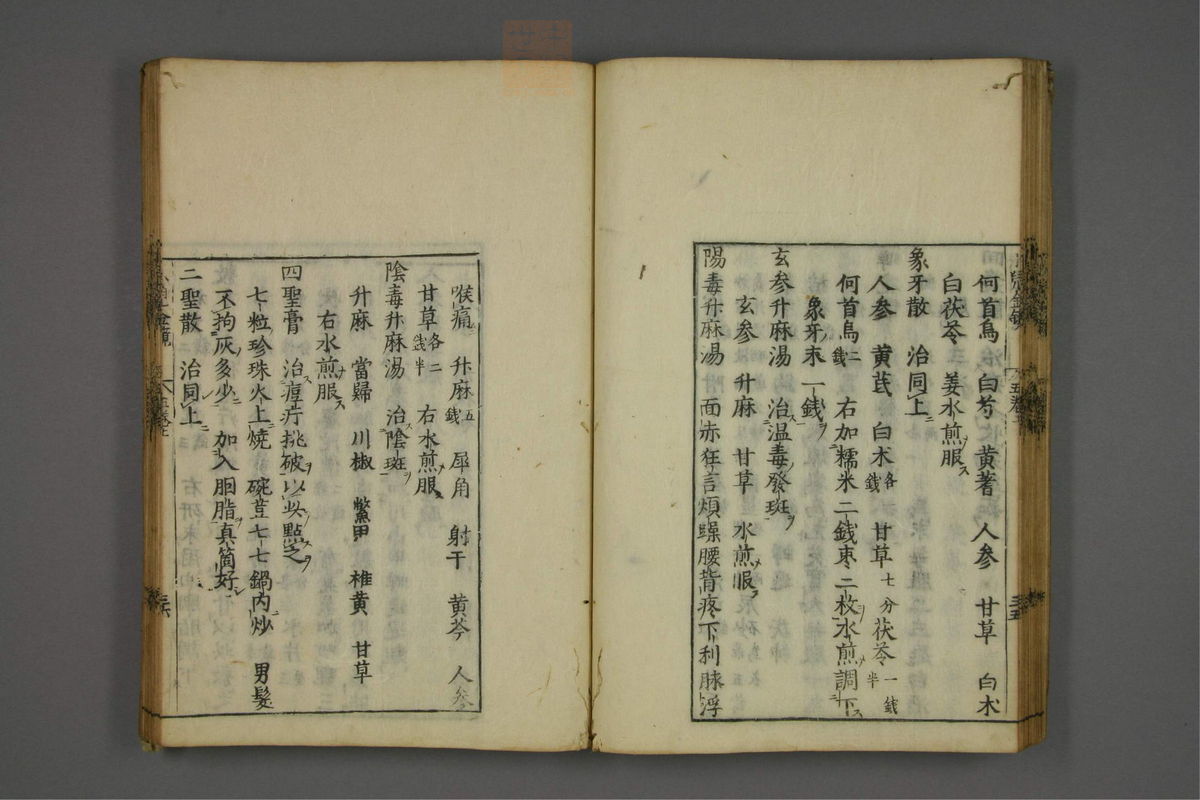 何首烏 白芍 黄著 人参 甘草 白术
白茯苓 姜水煎服ス
象牙散 治同上ニ
人参 黄芪 白术各錢 甘草七分 茯苓一錢半
何首烏二錢 右加糯米二錢枣二枚水煎調下ス
象牙末一錢ヲ
玄参升麻湯 治温毒發斑ヲ
玄参 升麻 甘草 水煎服ス
陽毒升麻湯 面赤狂言煩躁腰背疼下利脉浮
喉痛ニ 升麻五錢 犀角 射干 黄芩 人参
甘草各二錢半 右水煎服ス
陰毒升麻湯 治陰斑ヲ
升麻 當歸 川椒 鱉甲 椎黄 甘草
右水煎服ス
四聖膏 治痘疔挑破以此點之
七粒珍珠火上燒 碗荳七七鍋内炒 男髮
不拘灰多少 加入胭脂真箇好
二聖散 治同上ニ